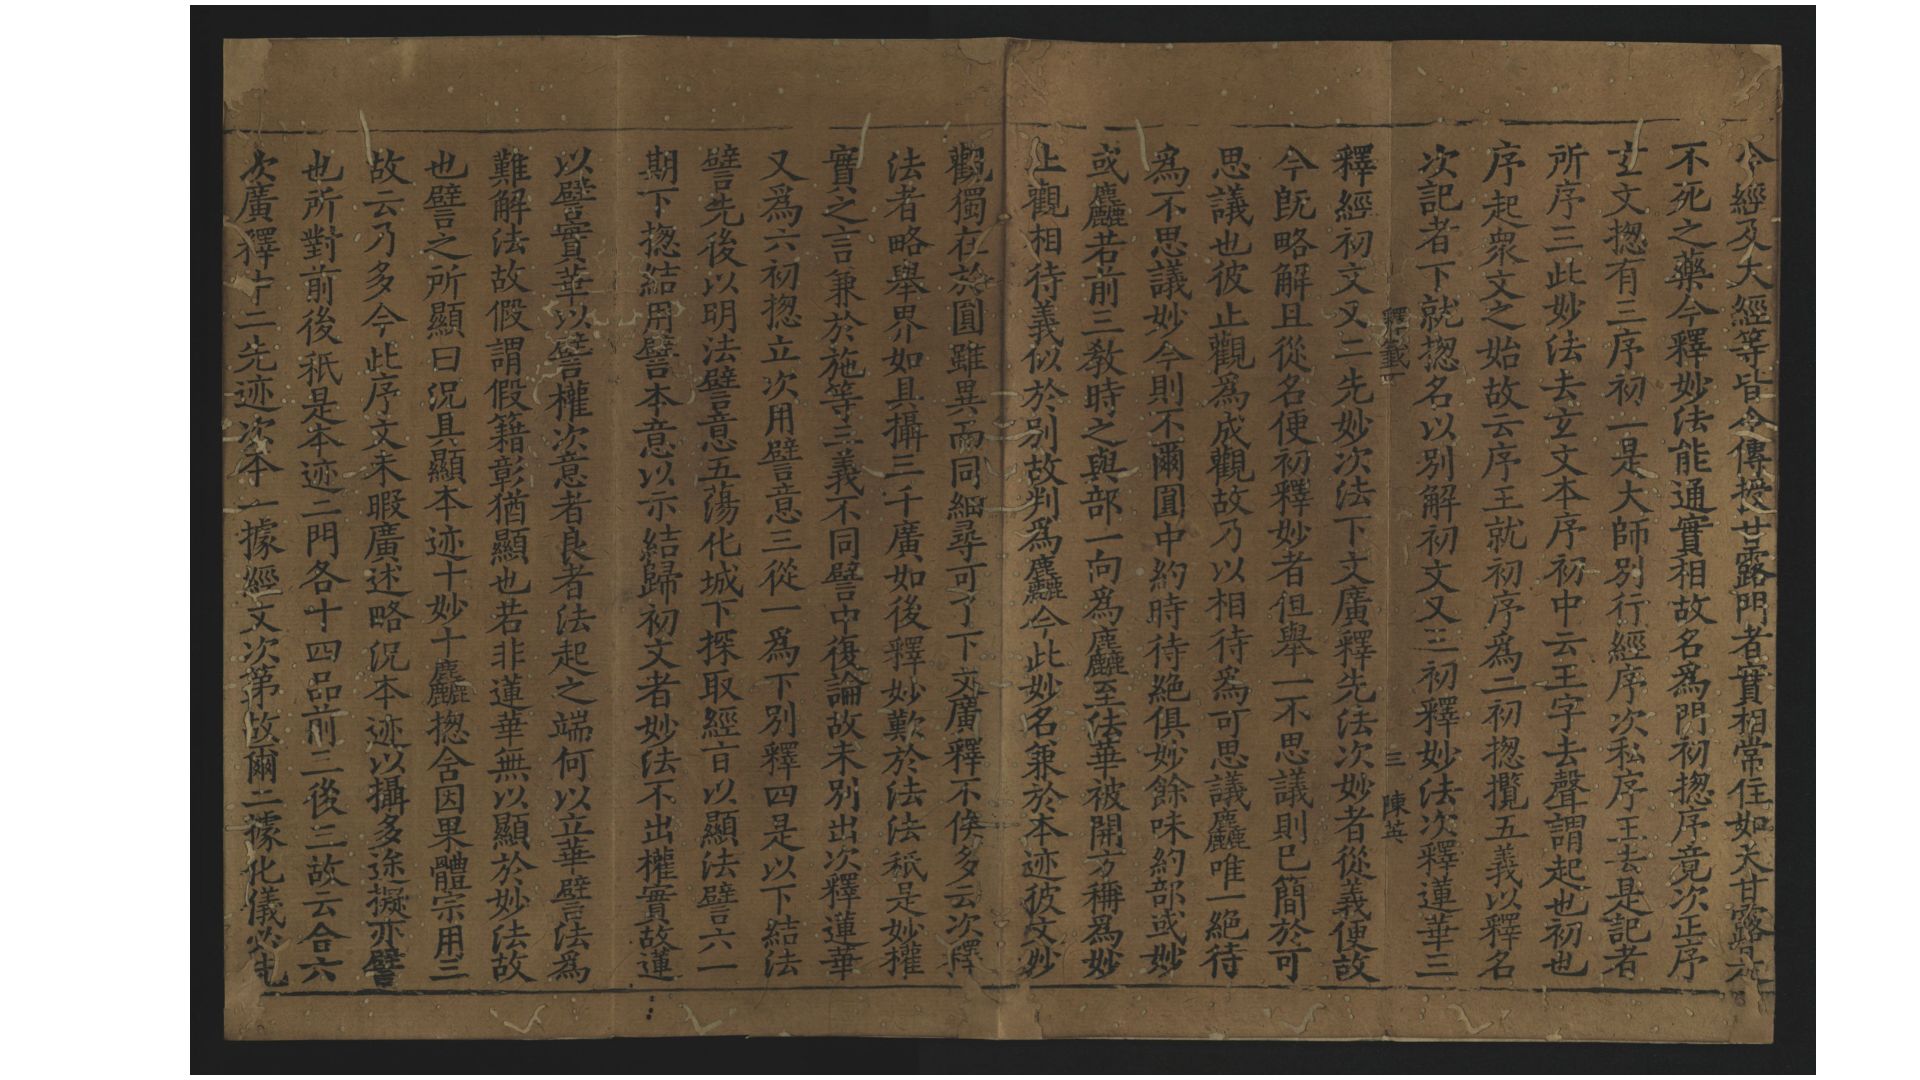 今經及大經等皆令傳授甘露門者實相常住如天甘露是
不死之藥今釋妙法能通實相故名為門初揔序竟次正序
玄文揔有三序初一是大師別行經序次私序王去是記者
所序三此妙法去玄文本序初中云王字去聲謂起也初也
序起衆文之始故云序王就初序為二初揔攬五義以釋名
次記者下就揔名以別解初文又三初釋妙法次釋蓮華三
釋籤一 三 陳英
釋經初文又二先妙次法下文廣釋先法次妙者從義便故
今旣略解且從名便初釋妙者但舉一不思議則已簡於可
思議也彼止觀為成觀故乃以相待為可思議麤唯一絕待
為不思議妙今則不爾圓中約時待絕俱妙餘味約部或妙
或麤若前三教時之與部一向為麤至法華被開方稱為妙
止觀相待義似於別故判為麤今此妙名兼於本迹彼文妙
觀獨在於圓雖異而同細尋可了下文廣釋不俟多云次釋
法者略舉界如具攝三千廣如後釋妙歎於法法秖是妙權
實之言兼於施等三義不同譬中復論故未別出次釋蓮華
又為六初揔立次用譬意三從一為下別釋四是以下結法
譬先後以明法譬意五蕩化城下探取經旨以顯法譬六一
期下揔結用譬本意以示結歸初文者妙法不出權實故蓮
以譬實華以譬權次意者良者法起之端何以立華譬法為
難解法故假謂假籍彰猶顯也若非蓮華無以顯於妙法故
也譬之所顯曰況具顯本迹十妙十麤揔含因果體宗用三
故云乃多今此序文未暇廣述略況本迹以攝多途擬亦譬
也所對前後秖是本迹二門各十四品前二後三故云合六
次廣釋中二先迹次本一據經文次第故爾二據化儀必先